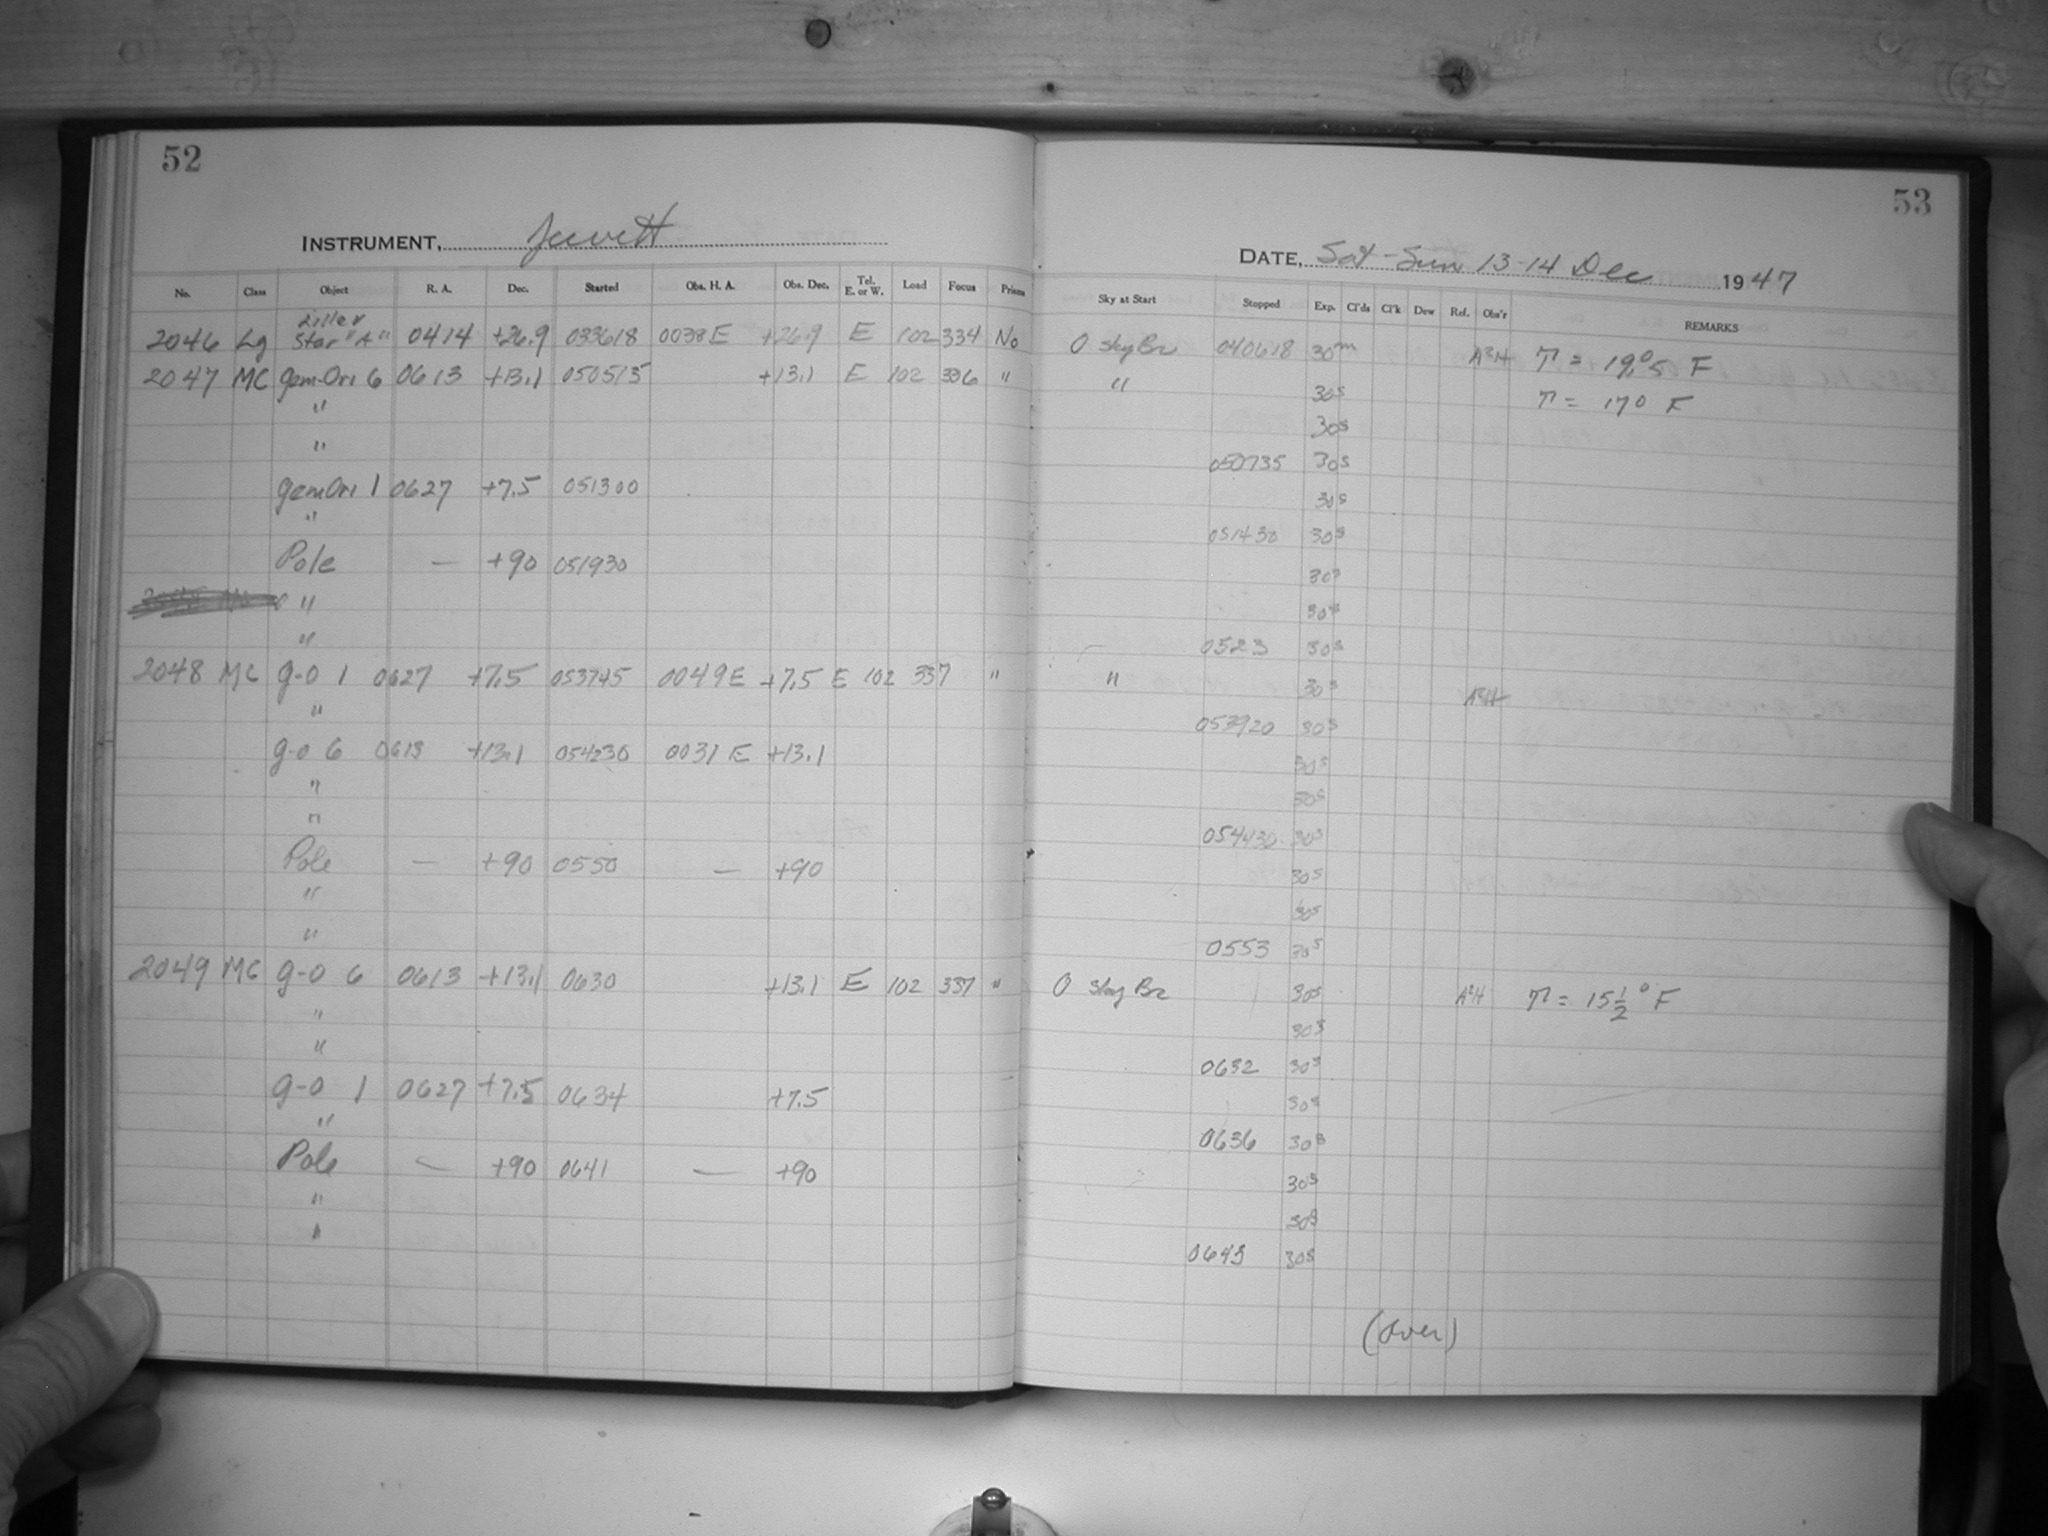 52
INSTRUMENT, Jewett
No. Class Object R. A. Dec. Started Obs. H. A. Obs. Dec. Tel. E. or W. Load Focus Prisms
2046 Lg Liller Star "A" 0414 +26.9 033618 0038E +26.9 E 102 334 No
2047 MC Gem-Ori 6 0613 +13.1 050515 +13.1 E 102 336 "
"
"
Gem Ori 1 0627 +7.5 051300
"
Pole — +90 051930
"
"
2048 MC G-O 1 0627 +7.5 053745 0049E +7.5 E 102 337 "
"
G-O 6 0613 +13.1 054230 0031 E +13.1
"
"
Pole — +90 0550 — +90
"
"
2049 MC G-O 6 0613 +13.1 0630 +13.1 E 102 337 "
"
"
G-O 1 0627 +7.5 0634 +7.5
"
Pole — +90 0641 — +90
"
"
53
DATE, Sat-Sun 13-14 Dec 1947
Sky at Start Stopped Exp. Cl'ds Cl'k Dew Ref. Obs'r REMARKS
0 Sky Br 040618 30m A²H T = 19.°5 F
" 30s T = 17° F
30s
050735 30s
30s
051430 30s
30s
30s
0523 30s
" 30s A²H
053920 30s
30s
30s
054430 30s
30s
30s
0553 30s
0 Sky Br 30s A²H T = 15 1/2° F
30s
0632 30s
30s
0636 30s
30s
30s
0643 30s
(over)